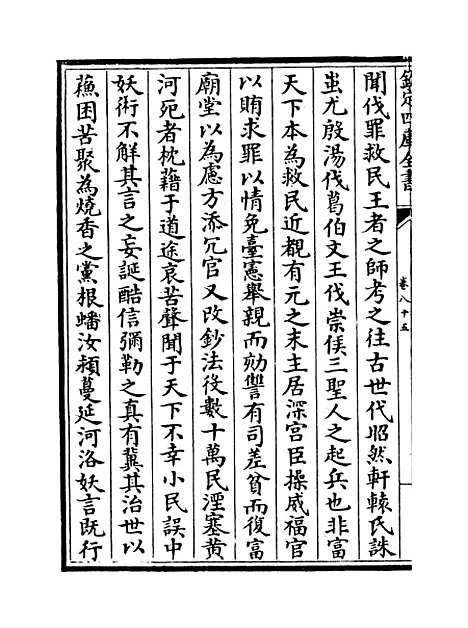 欽定四庫全書
卷八十五
聞伐罪救民王者之師考之往古世代昭然軒轅氏誅
蚩尤殷湯伐葛伯文王伐崇侯三聖人之起兵也非富
天下本為救民近覩有元之末主居深宫臣操威福官
以賄求罪以情免臺憲舉親而劾讐有司差貧而復富
廟堂以為慮方添冗官又改鈔法役數十萬民湮塞黄
河死者枕藉于道途哀苦聲聞于天下不幸小民誤中
妖術不解其言之妄誕酷信彌勒之真有冀其治世以
蘓困苦聚為燒香之黨根蟠汝潁蔓延河洛妖言既行